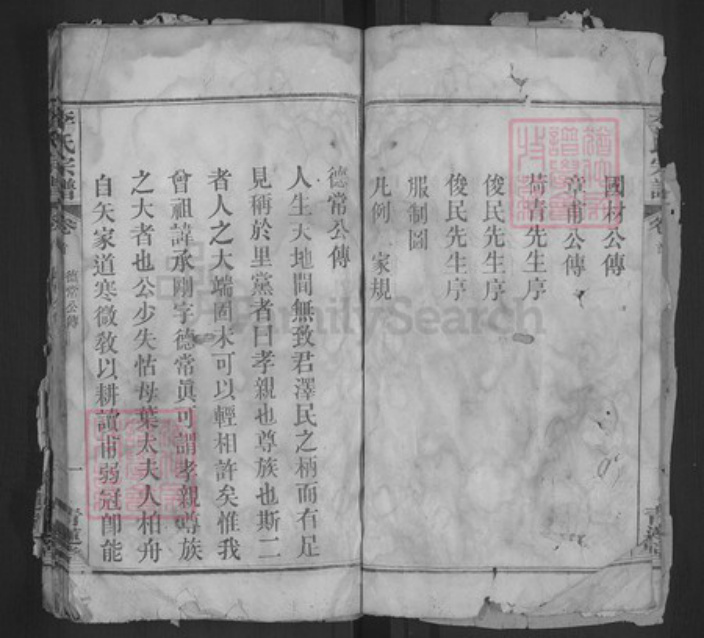 國材公傳
章甫公傳
荷青先生序
俊民先生序
俊民先生序
服制圖
凡例 家規
德常公傳
人生天地間無致君澤民之柄而有足
見稱於里黨者曰孝親也尊族也斯二
者人之大端固未可以輕相許矣惟我
曾祖諱承剛字德常眞可謂孝親尊族
之大者也公少失怙母葉太夫人柏舟
自矢家道寒微教以耕讀甫弱冠卽能
李氏宗譜
卷首
德常公傳
一
青蓮
FamilySearch